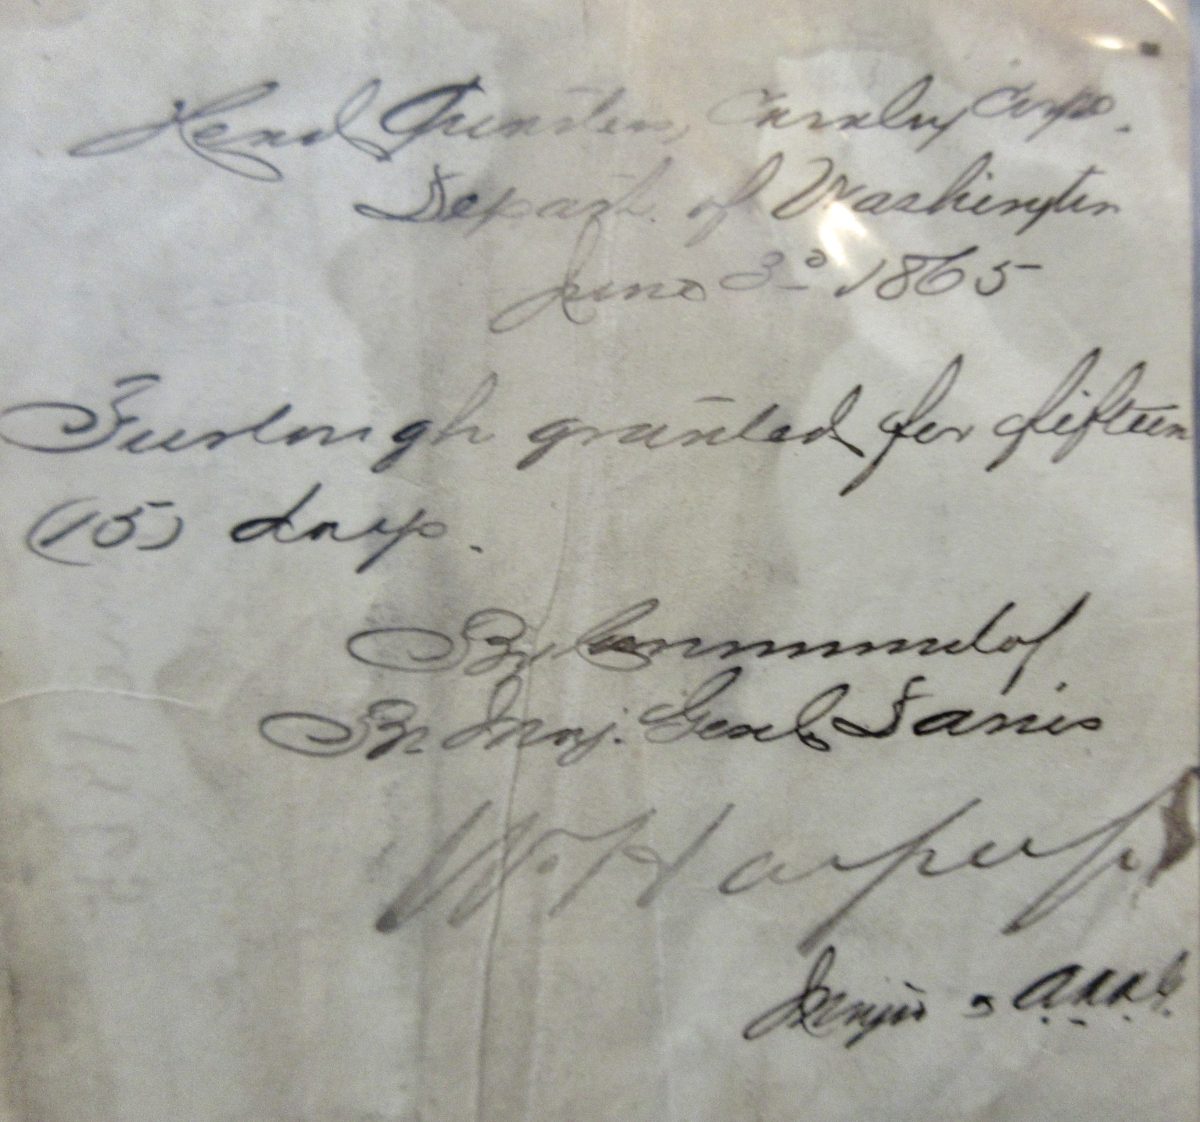 Head Quarters, Cavalry Corps.
Depart. of Washington
June 3d 1865
Furlough granted for fifteen
(15) days.
By Command of
Br Maj. Genl
Wm Harper Jr
Major & A.A.A.G.